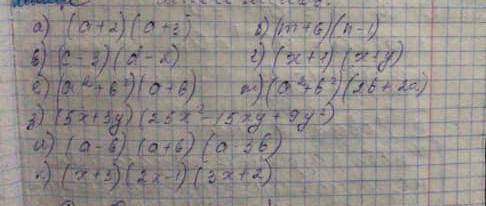 а) (a+2)(a+3) б) (m+6)(n-1)
в) (c-3)(a-2) г) (x+1)(x+y)
е) (a²+b²)(a+b) ж) (a²+b²)(2b+2a)
з) (5x+3y)(25x²-15xy+9y²)
и) (a-b)(a+b)(a-3b)
к) (x+3)(2x-1)(3x+2)